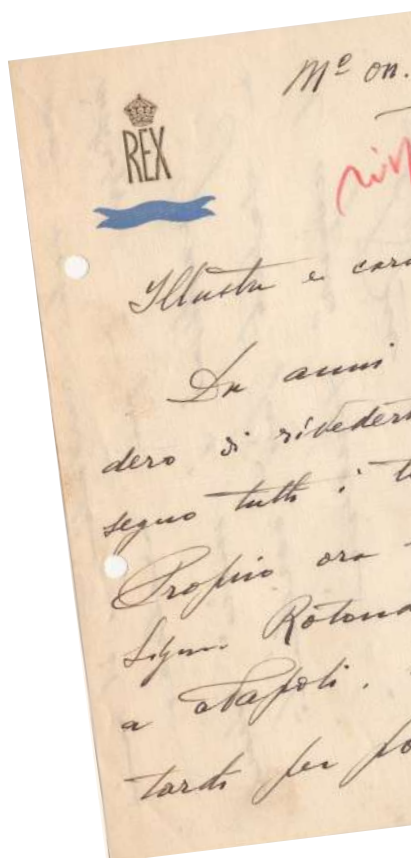 Mº on.
REX
Illustre e caro
Da anni
dero di rivederl
seguo tutti i
Proprio ora
Signor Rotond
a Napoli.
tardi per po